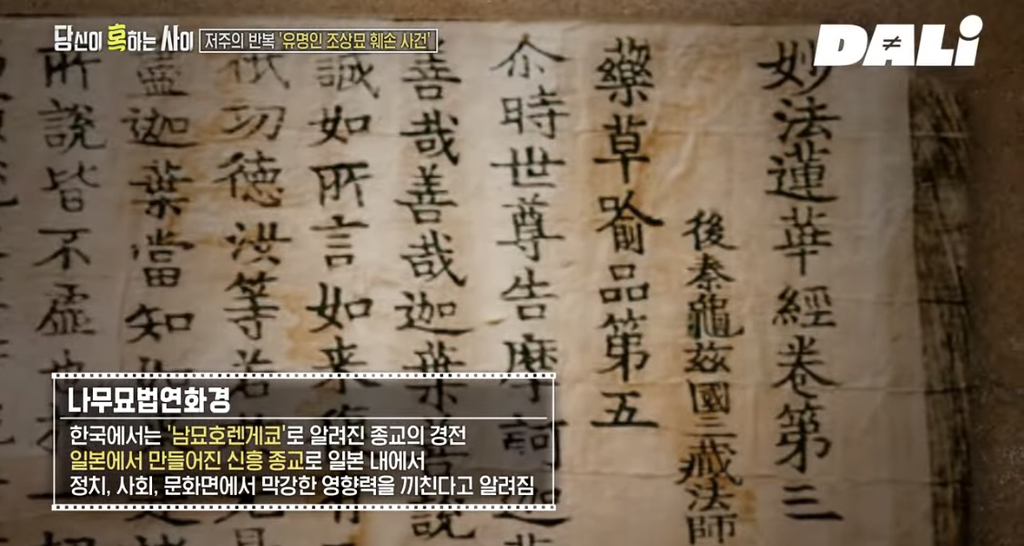 당신이 혹하는 사이
저주의 반복 '유명인 조상묘 훼손 사건'
DALi
妙法蓮華經卷第三
後秦龜茲國三藏法師
藥草喻品第五
尒時世尊告摩訶迦
善哉善哉迦葉善說
誠如所言如来復有
祇功德汝等若
盡迦葉當知
所說皆不虛也
나무묘법연화경
한국에서는 '남묘호렌게쿄'로 알려진 종교의 경전
일본에서 만들어진 신흥 종교로 일본 내에서
정치, 사회, 문화면에서 막강한 영향력을 끼친다고 알려짐